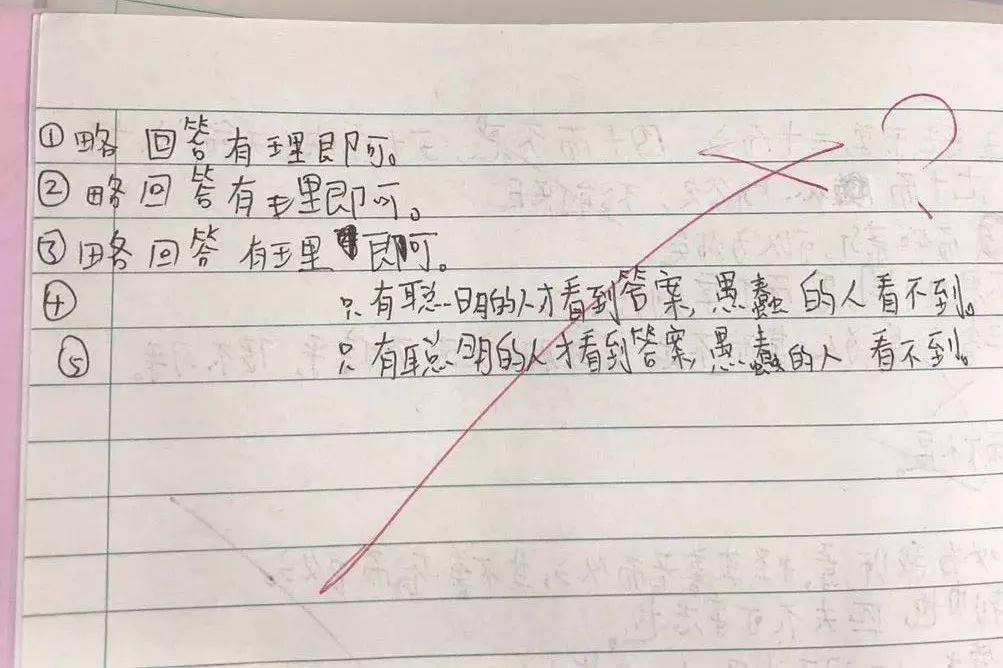 ①略 回答有理即可。
②略回答有理即可。
③略回答 有理即可。
④ 只有聪明的人才看到答案,愚蠢的人看不到。
⑤ 只有聪明的人才看到答案,愚蠢的人 看不到。
?